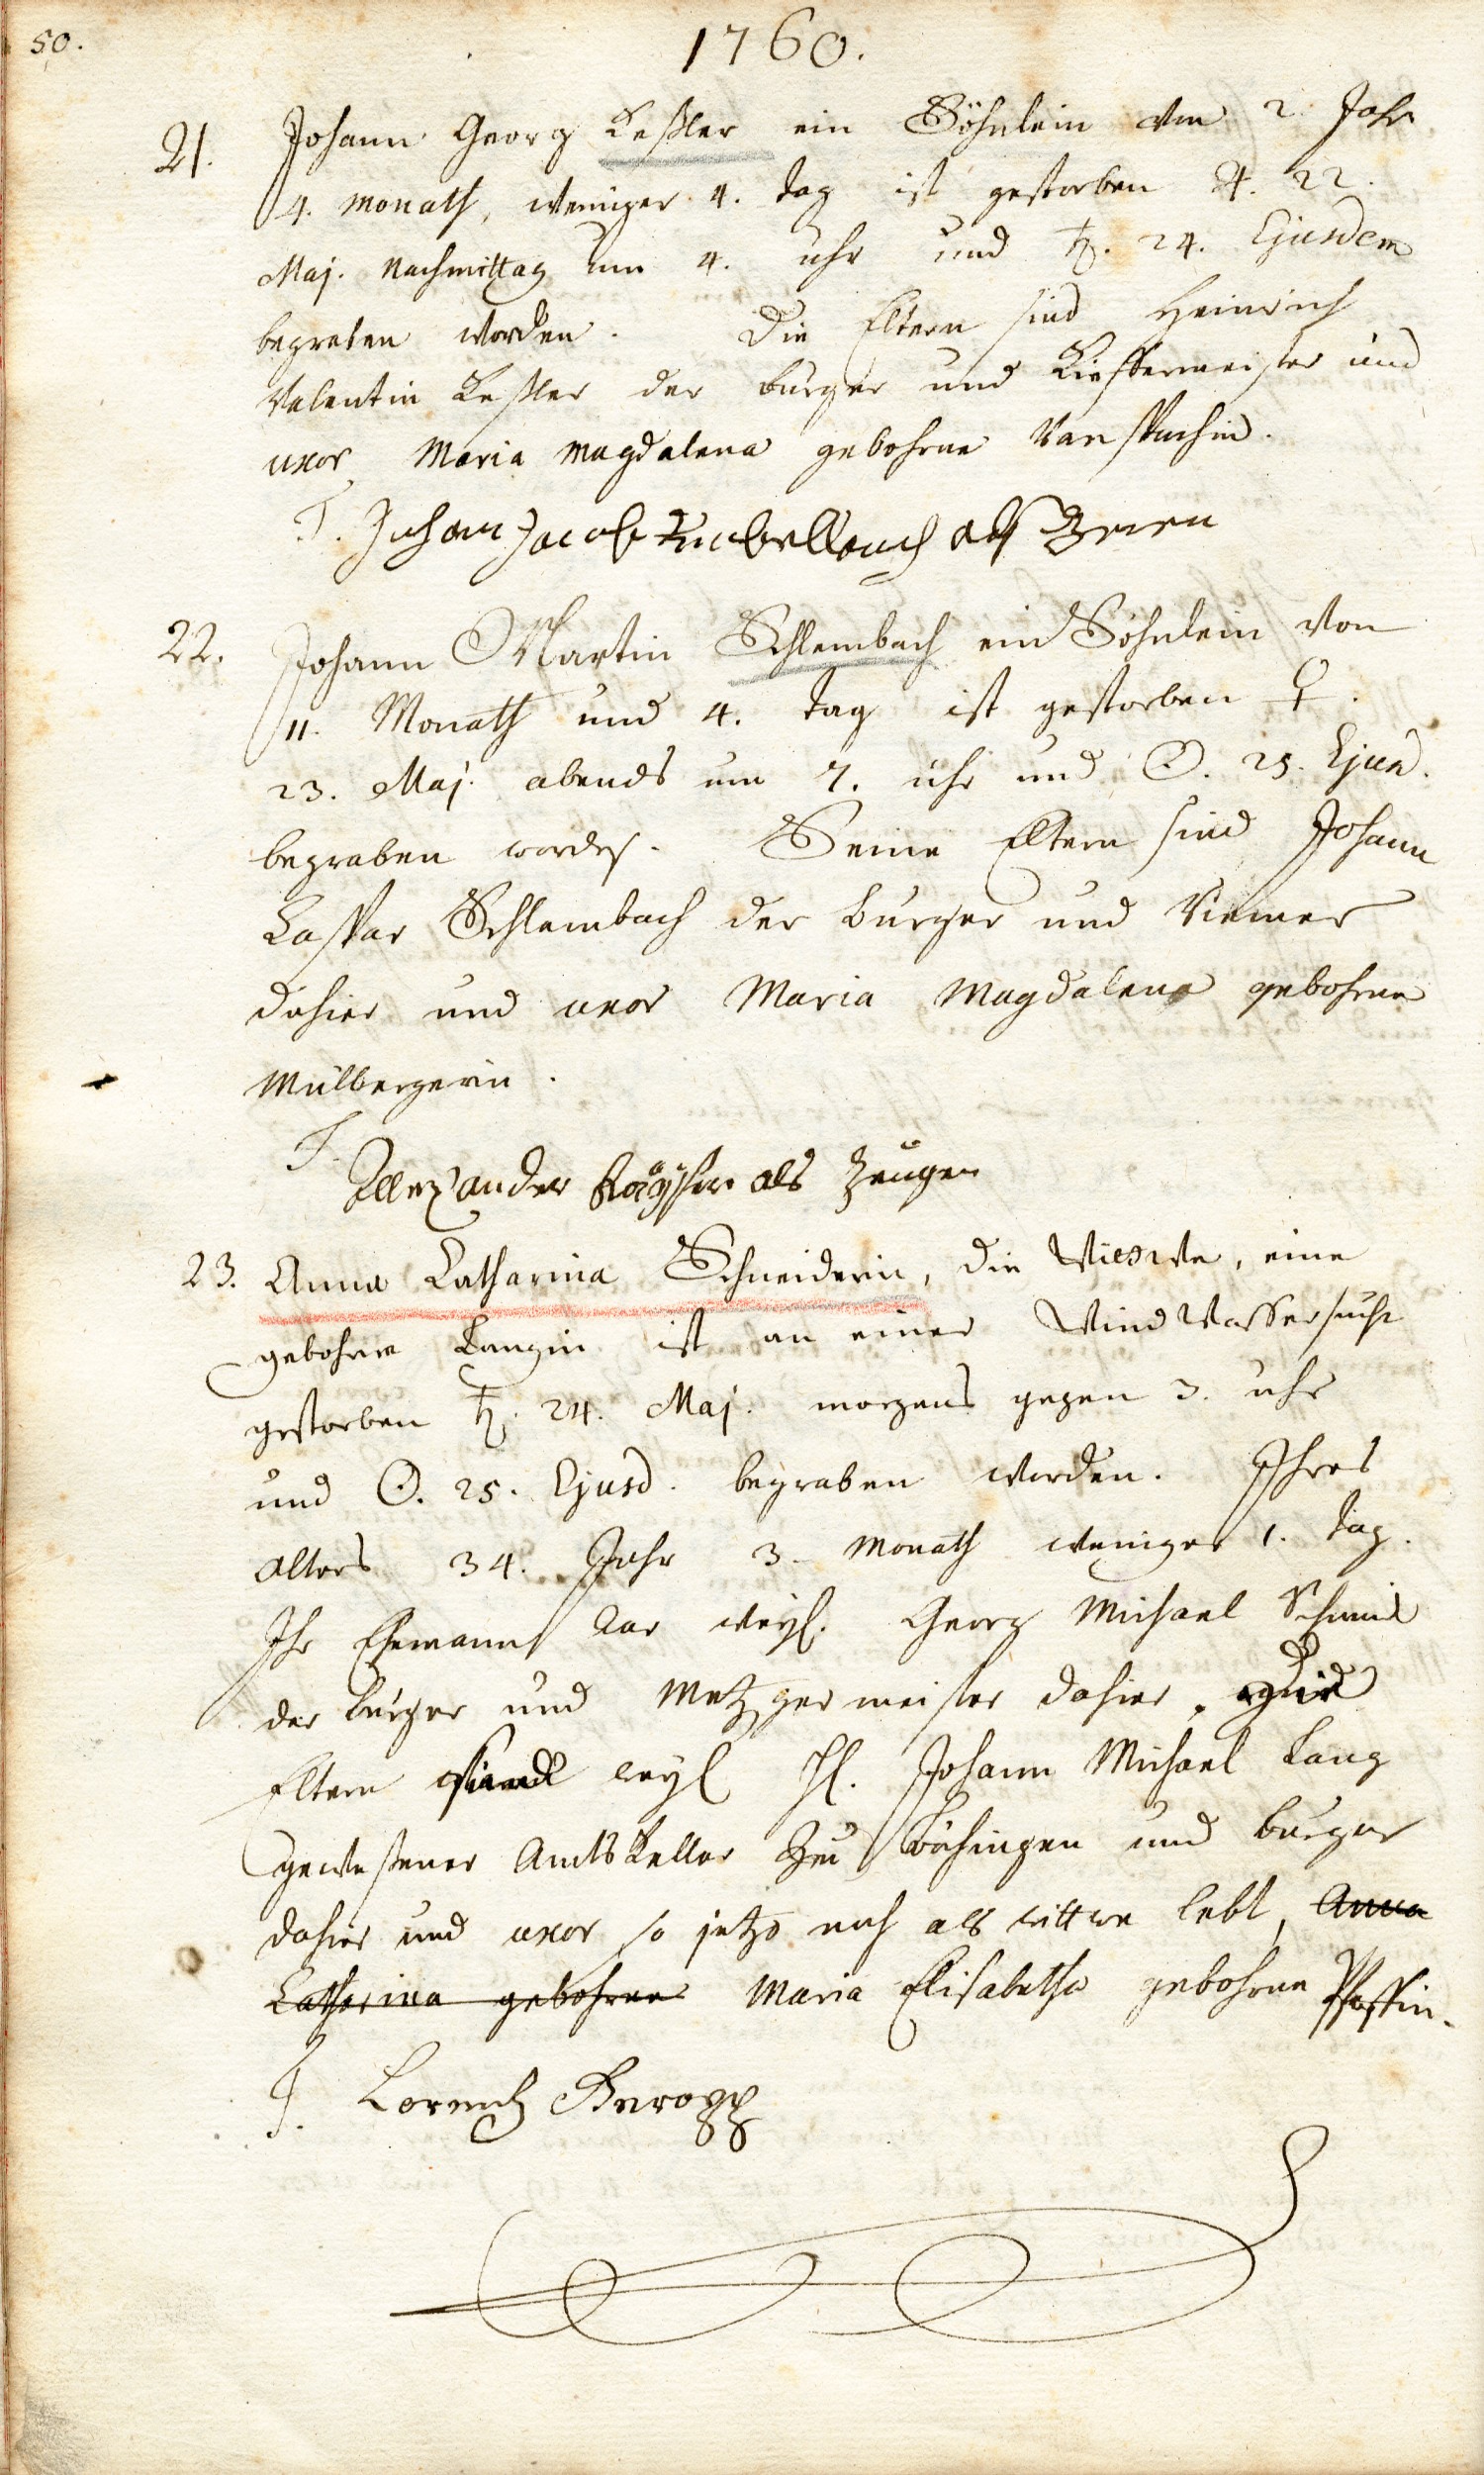 50.
1760.
21. Johann Georg Keßler ein Söhnlein von 2. Jahr
4. Monath, weniger 4. tag ist gestorben ♃. 22.
Maj. Nachmittag um 4. uhr und ♄. 24. Ejusdem
begraben worden. Die Eltern sind Heinrich
Valentin Keßler der burger und Kieffermeister und
uxor, Maria Magdalena gebohrne
T. Johan Jacob als
22. Johann Martin Schlembach ein Söhnlein von
11. Monath und 4. tag ist gestorben ♀.
23. Maj. abends um 7. uhr und ☉. 25. Ejusd.
begraben worden. Seine Eltern sind Johann
Caspar Schlembach der burger und
dahier und uxor Maria Magdalena gebohrne
Mülbergerin.
T.
Allexander als Zeugen
23. Anna Catharina Schneiderin, die Wittwe, eine
gebohrne Langin ist an einer Wind Wassersucht
gestorben ♄. 24. Maj. morgens gegen 3. uhr
und ☉. 25. Ejusd. begraben worden. Ihres
alters 34. Jahr 3. Monath weniger 1. tag.
Ihr Ehemann war weyl. Georg Michael Schneid
der burger und Metzger meister dahier. Die
Eltern sind weyl H. Johann Michael Lang
gewesener Amts Keller zu und burger
dahier und uxor so jetzo noch als wittwe lebt, Anna
Catharina gebohrne Maria Elisabetha gebohrne Pfaffin.
T. Lorentz